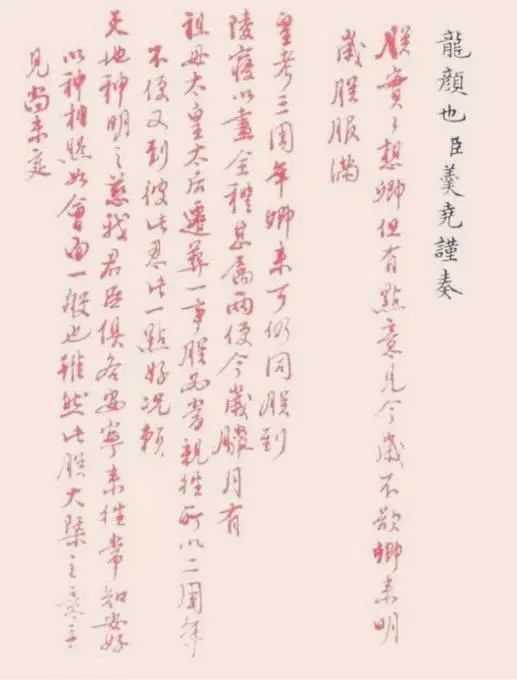 龍顏也臣羹堯謹奏
朕實々想卿但有點意見今歲不欲卿來明
歲朕服滿
皇考三周年卿來可仍同朕到
陵寢以盡全禮甚屬兩便今歲臘月有
祖母太皇太后遷葬一事朕必當親往所以二周年
不便又到彼此忍此一點好况賴
天地神明之慈我君臣俱各安寧來往常知安好
以神相照如會面一般也雖然此朕大槩之意主
見尚未定